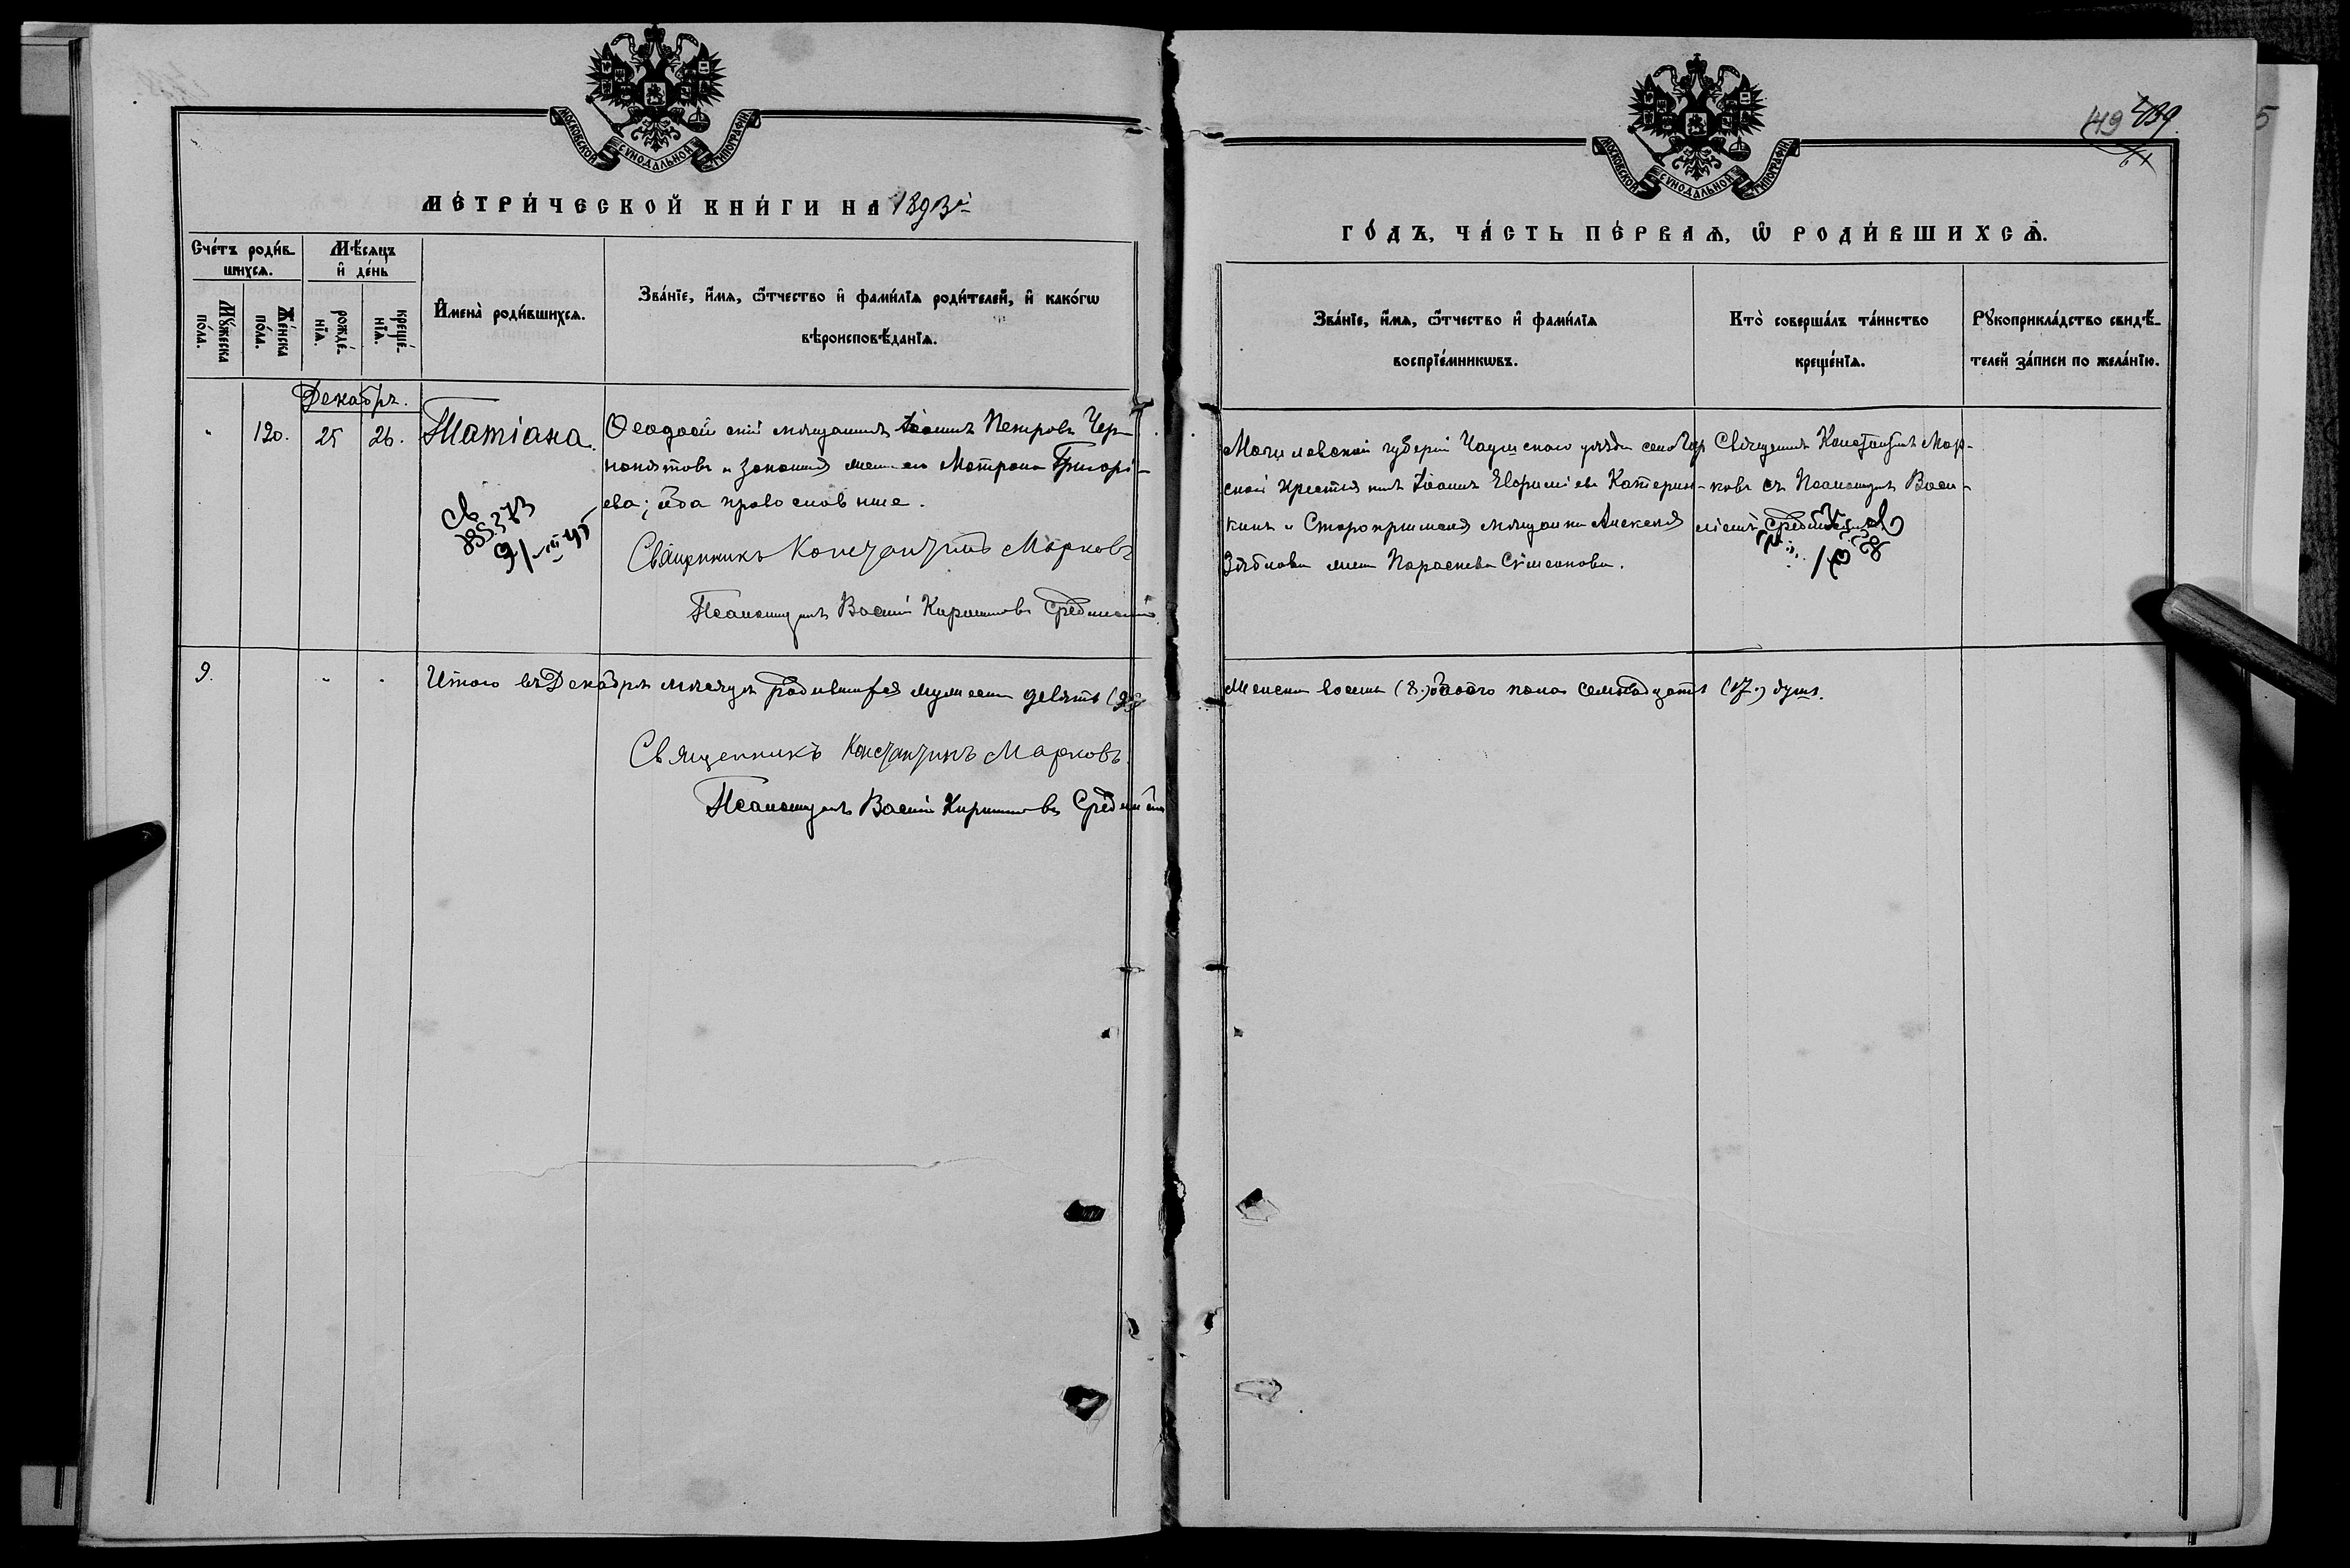 МОСКОВСКОЙ СѴНОДАЛЬНОЙ ТИПОГРАФІИ
МЕТРИ́ЧЕСКОЙ КНИ́ГИ НА 1893й
Сче́тъ роди́вшихсѧ.
Мꙋ́жеска по́ла.
Же́нска по́ла.
Мѣ́сѧцъ и҆ де́нь
рожде́нїѧ.
креще́нїѧ.
И҆мена̀ роди́вшихсѧ.
Зва́нїе, и҆́мѧ, ѻ҆́тчество и҆ фами́лїѧ роди́телей, и҆ како́гѡ
вѣроисповѣ́данїѧ.
Декабрь.
120. 25 26. Татіана.
Ѳеодосійскій мѣщанинъ Іоаннъ Петровъ Чер-
нопятовъ и законная жена его Матрона Григорі-
ева; оба православные.
Св
Священникъ Константинъ Марковъ
Псаломщикъ Василій Кирилловъ Срединскій
9. Итого въ Декабрѣ мѣсяцѣ родившихся мужеска девять (9)
Священникъ Константинъ Марковъ
Псаломщикъ Василій Кирилловъ Срединскій
МОСКОВСКОЙ СѴНОДАЛЬНОЙ ТИПОГРАФІИ
149 439.
ГО́ДЪ, ЧА́СТЬ ПЕ́РВАѦ, Ѡ҆ РОДИ́ВШИХСѦ.
Зва́нїе, и҆́мѧ, ѻ҆́тчество и҆ фами́лїѧ
воспрїе́мникѡвъ.
Кто̀ соверша́лъ та́инство
креще́нїѧ.
Рꙋкоприкла́дство свидѣ́-
телей за́писи по жела́нїю.
Могилевской губерніи Чаусскаго уѣзда села Гор
ской крестьянинъ Іоаннъ Евфиміевъ Катерин-
кинъ и Старокрымская мѣщанка Алексѣя
Зяблова жена Параскева Сѵмеонова.
Священникъ Константинъ Мар-
ковъ съ Псаломщик Васи-
ліемъ Срединскимъ
женска восемь (8.) обоего пола семнадцать (17.) душъ.